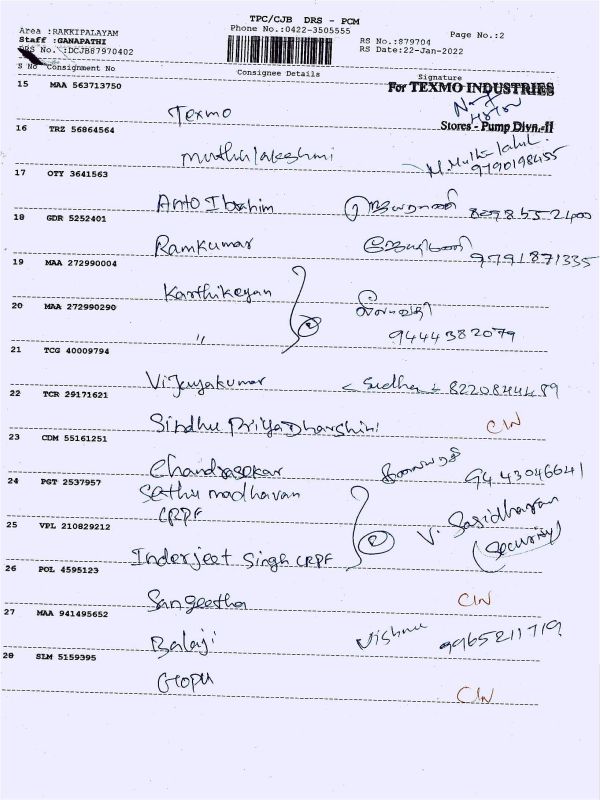 TPC/CJB DRS - PCM
Area :RAKKIPALAYAM
Phone No.:0422-3505555
Page No.:2
Staff :GANAPATHI
RS No.:879704
DRS No. :DCJB87970402
RS Date:22-Jan-2022
S No Consignment No
Consignee Details
Signature
15 MAA 563713750
For TEXMO INDUSTRIES
Texmo
Stores - Pump Divn.-II
16 TRZ 56864564
muthulakshmi
M. Muthulakshmi
9790198455
17 OTY 3641563
Anto Ibrahim
18 GDR 5252401
Ramkumar
9791871335
19 MAA 272990004
Karthikeyan
20 MAA 272990290
"
9444382079
21 TCG 40009794
Vijayakumar
Sudha
22 TCR 29171621
Sindhu PriyaDharshini
C/N
23 CDM 55161251
Chandrasekar
9443046641
24 PGT 2537957
Sethu madhavan
CRPF
V. Sasidharan
(Security)
25 VPL 210829212
Inderjeet Singh CRPF
26 POL 4595123
Sangeetha
C/N
27 MAA 941495652
Balaji
Vishnu
9965211719
28 SLM 5159395
Gopu
C/N